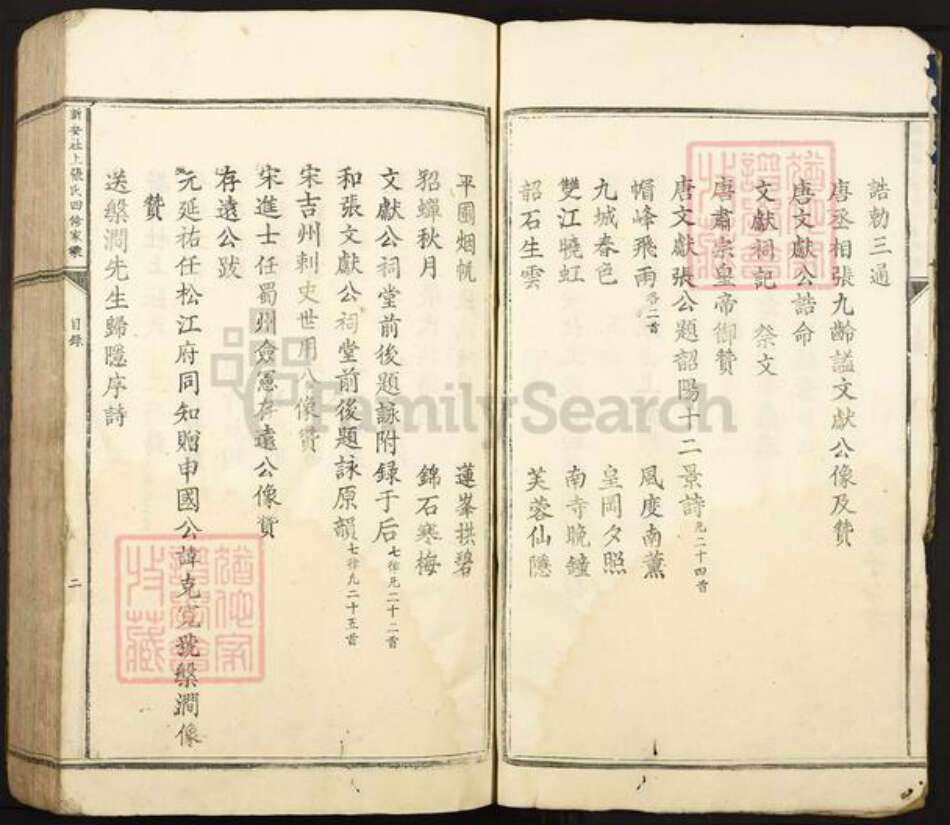 誥勅三通
唐丞相張九齡謚文獻公像及贊
唐文獻公誥命
文獻祠記 祭文
唐肅宗皇帝御贊
唐文獻張公題韶陽十二景詩凡二十四首
帽峰飛雨各二首 風度南薰
九城春色 皇岡夕照
雙江曉虹 南寺晚鐘
韶石生雲 芙蓉仙隱
平圃烟帆 蓮峯拱碧
貂蟬秋月 錦石寒梅
文獻公祠堂前後題詠附録于后七律凡二十二首
和張文獻公祠堂前後題詠原韻七律九二十五首
宋吉州刺史世用公像贊
宋進士任蜀州僉憲存遠公像贊
存遠公跋
元延祐任松江府同知贈申國公諱克寬號槃澗像
贊
送槃澗先生歸隱序詩
新安社上張氏四修家乘
目録
二
FamilySearch